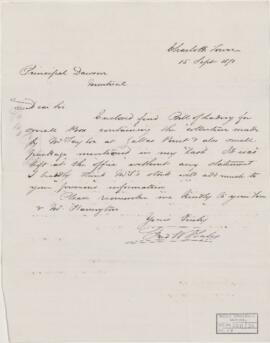 Charlotte Town
15 Sept 1871
Principal Dawson
Montreal
Dear Sir
Enclosed find Bill of Lading for
small Box containing the collection made
by Mr Taylor at Gallas Point & also small
package mentioned in my last. It was
left at the office without any statement
I hardly think Mr T's stock will add much to
your previous information
Please remember me kindly to your Son
& Mr Harrington
Yours Truly
Fred W Hales